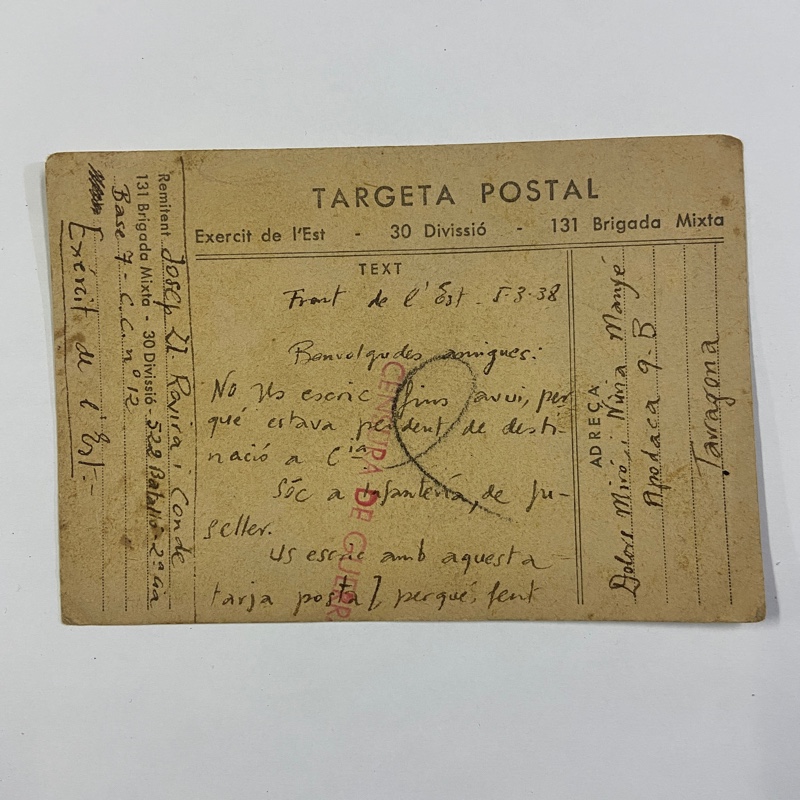 TARGETA POSTAL
Exercit de l'Est - 30 Divissió - 131 Brigada Mixta
TEXT
Front de l'Est - 5-3-38
Benvolgudes amigues:
No us escric fins avui, per
què estava pendent de desti-
nació a Cia
Sóc a Infanteria, de fu-
seller.
Us escric amb aquesta
tarja postal, perquè, fent
CENSURA DE GUERR
Remitent Josep Ll. Rovira i Conde
131 Brigada Mixta - 30 Divissió - 522 Batalló - 2ª Cia
Base 7 - C.C. nº 12
Exércit de l'Est.-
ADREÇA
Dolors Miró i Núria Manyé
Apodaca 9-B
Tarragona